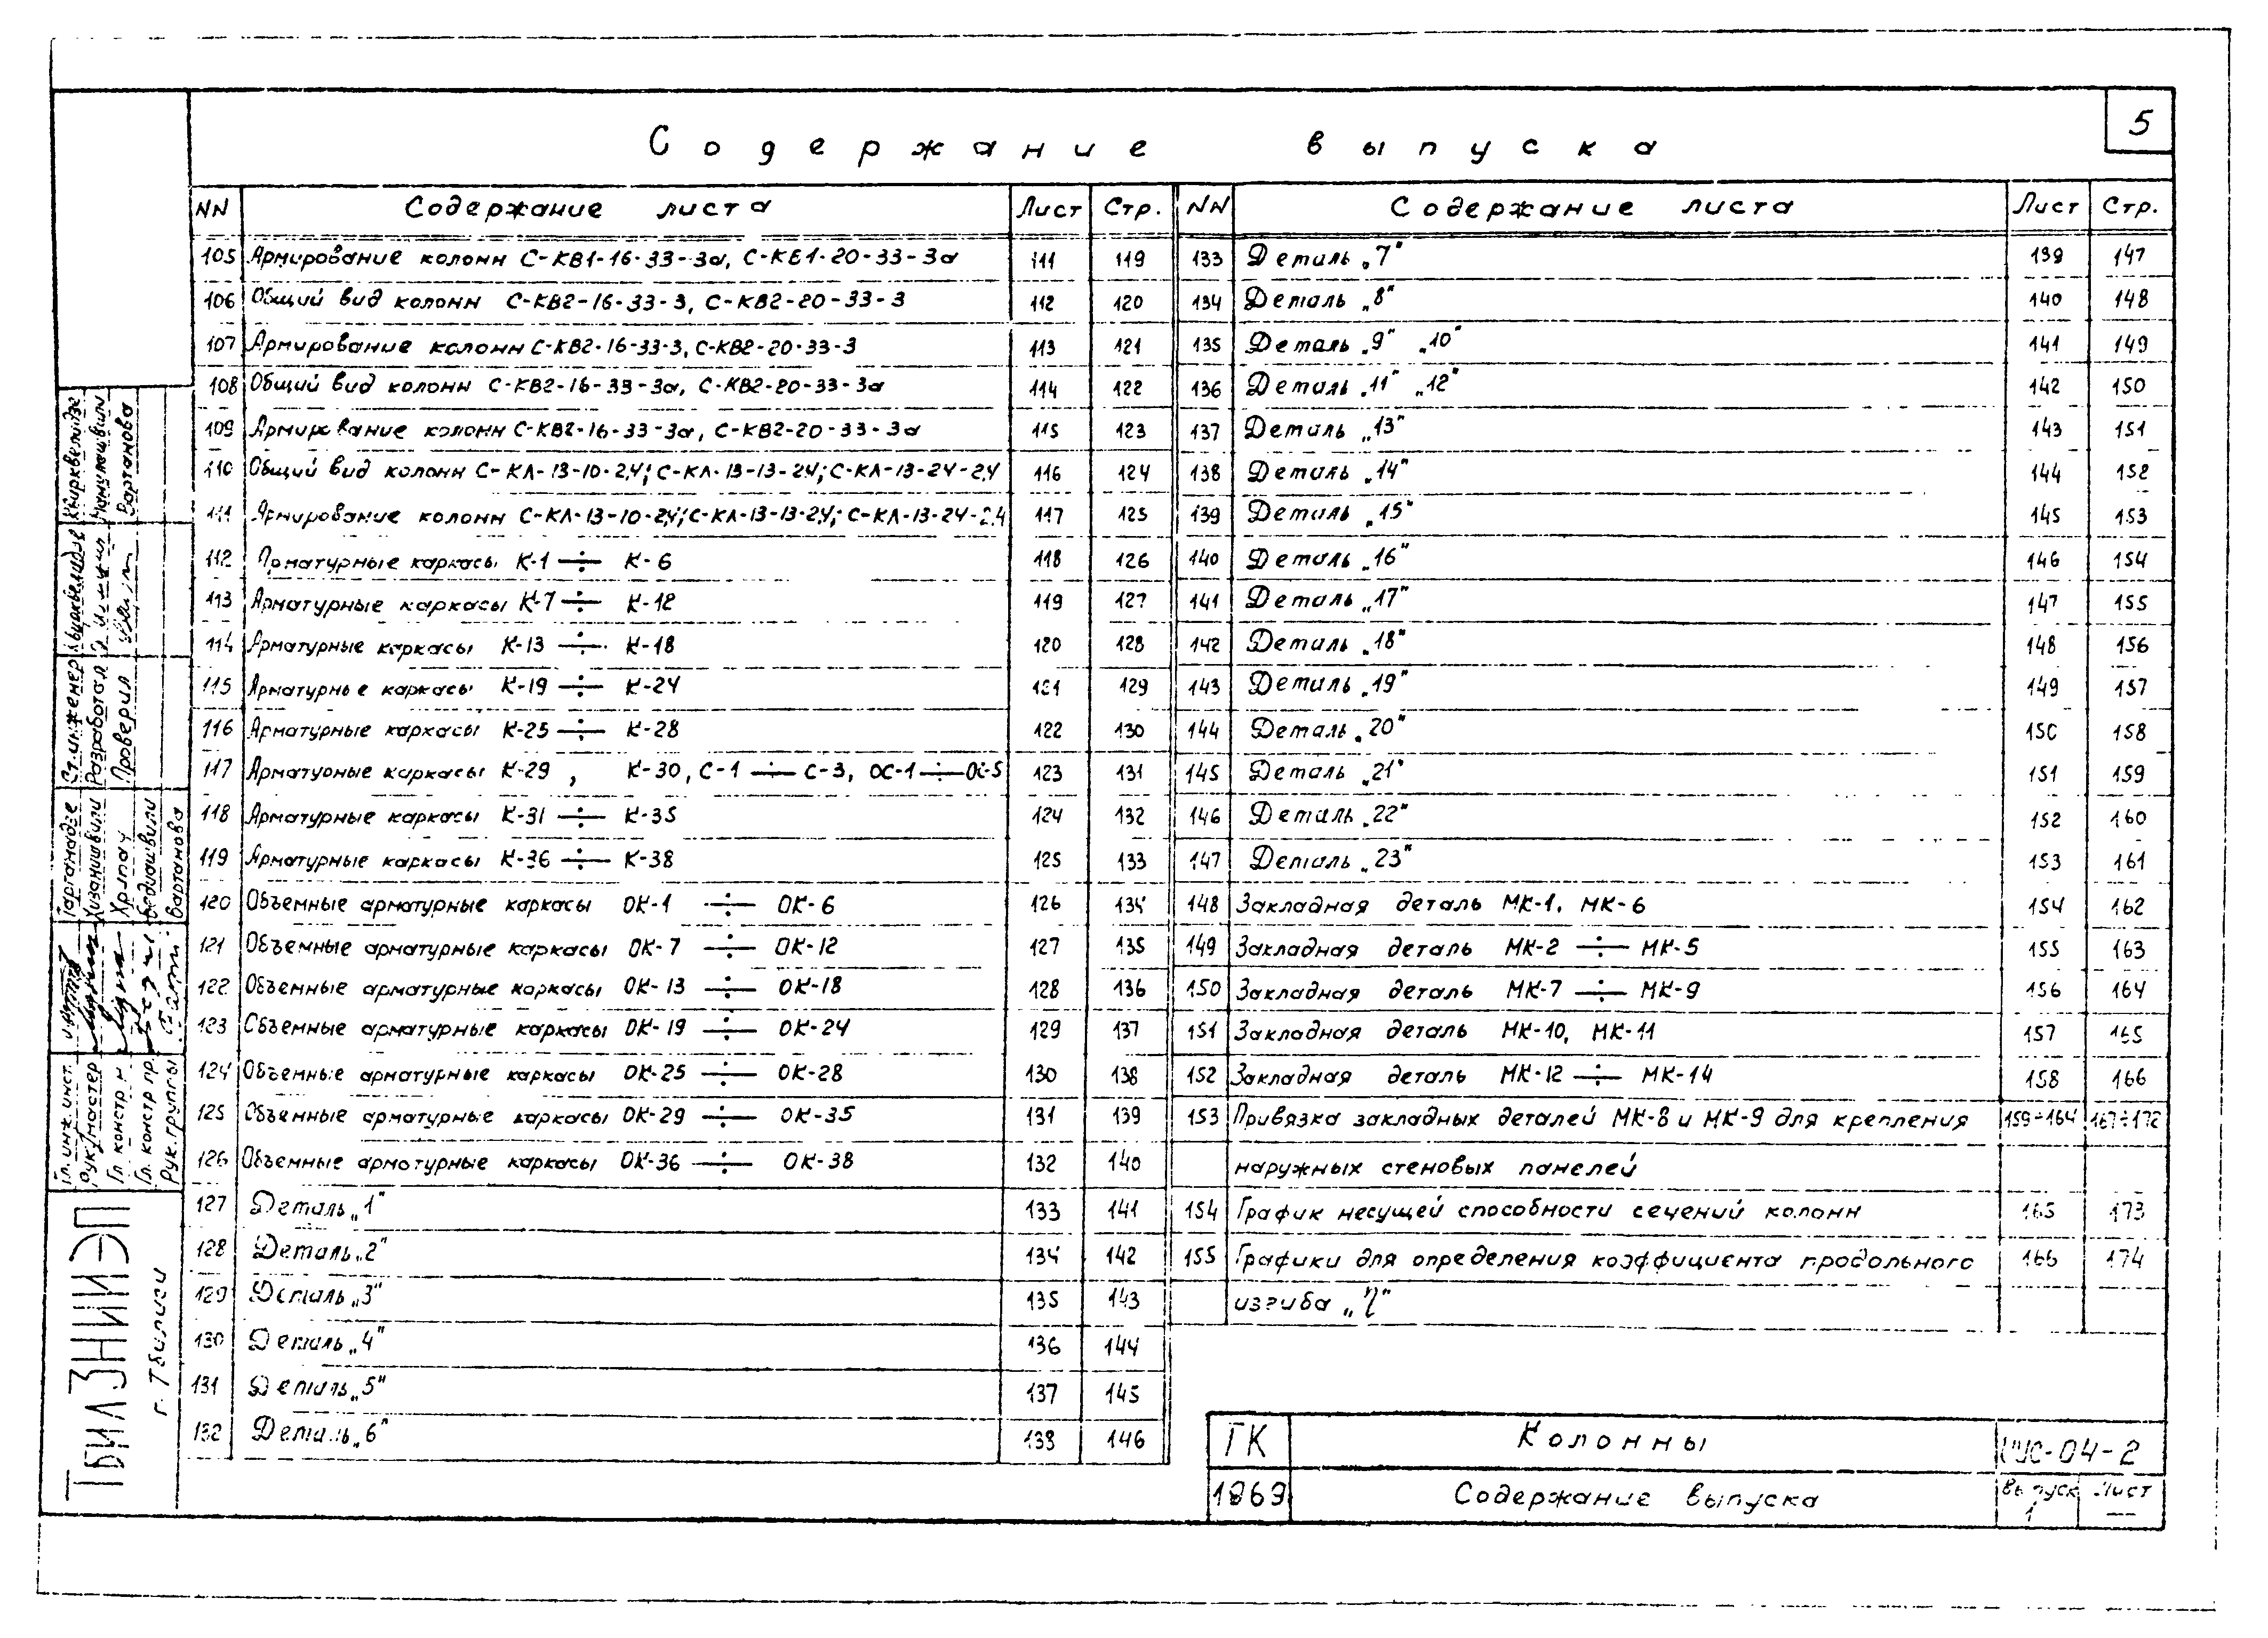 5
Содержание выпуска
NN Содержание листа Лист Стр.
105 Армирование колонн С-КВ1-16-33-3а, С-КВ1-20-33-3а 111 119
106 Общий вид колонн С-КВ2-16-33-3, С-КВ2-20-33-3 112 120
107 Армирование колонн С-КВ2-16-33-3, С-КВ2-20-33-3 113 121
108 Общий вид колонн С-КВ2-16-33-3а, С-КВ2-20-33-3а 114 122
109 Армирование колонн С-КВ2-16-33-3а, С-КВ2-20-33-3а 115 123
110 Общий вид колонн С-КЛ-13-10-2,4; С-КЛ-13-13-2,4; С-КЛ-13-24-2,4 116 124
111 Армирование колонн С-КЛ-13-10-2,4; С-КЛ-13-13-2,4; С-КЛ-13-24-2,4 117 125
112 Арматурные каркасы К-1 ÷ К-6 118 126
113 Арматурные каркасы К-7 ÷ К-12 119 127
114 Арматурные каркасы К-13 ÷ К-18 120 128
115 Арматурные каркасы К-19 ÷ К-24 121 129
116 Арматурные каркасы К-25 ÷ К-28 122 130
117 Арматурные каркасы К-29, К-30, С-1 ÷ С-3, ОС-1 ÷ ОС-5 123 131
118 Арматурные каркасы К-31 ÷ К-35 124 132
119 Арматурные каркасы К-36 ÷ К-38 125 133
120 Объемные арматурные каркасы ОК-1 ÷ ОК-6 126 134
121 Объемные арматурные каркасы ОК-7 ÷ ОК-12 127 135
122 Объемные арматурные каркасы ОК-13 ÷ ОК-18 128 136
123 Объемные арматурные каркасы ОК-19 ÷ ОК-24 129 137
124 Объемные арматурные каркасы ОК-25 ÷ ОК-28 130 138
125 Объемные арматурные каркасы ОК-29 ÷ ОК-35 131 139
126 Объемные арматурные каркасы ОК-36 ÷ ОК-38 132 140
127 Деталь „1" 133 141
128 Деталь „2" 134 142
129 Деталь „3" 135 143
130 Деталь „4" 136 144
131 Деталь „5" 137 145
132 Деталь „6" 138 146
NN Содержание листа Лист Стр.
133 Деталь „7" 139 147
134 Деталь „8" 140 148
135 Деталь „9" „10" 141 149
136 Деталь „11" „12" 142 150
137 Деталь „13" 143 151
138 Деталь „14" 144 152
139 Деталь „15" 145 153
140 Деталь „16" 146 154
141 Деталь „17" 147 155
142 Деталь „18" 148 156
143 Деталь „19" 149 157
144 Деталь „20" 150 158
145 Деталь „21" 151 159
146 Деталь „22" 152 160
147 Деталь „23" 153 161
148 Закладная деталь МК-1, МК-6 154 162
149 Закладная деталь МК-2 ÷ МК-5 155 163
150 Закладная деталь МК-7 ÷ МК-9 156 164
151 Закладная деталь МК-10, МК-11 157 165
152 Закладная деталь МК-12 ÷ МК-14 158 166
153 Привязка закладных деталей МК-8 и МК-9 для крепления 159÷164 167÷172
наружных стеновых панелей
154 График несущей способности сечений колонн 165 173
155 Графики для определения коэффициента продольного 166 174
изгиба „η"
ТК Колонны ИИС-04-2
1969 Содержание выпуска Выпуск 1 Лист —
ТбилЗНИИЭП
г. Тбилиси
Гл. инж. инст.
Рук. мастер Хизанишвили
Гл. констр. м.
Гл. констр. пр. Бедиашвили
Рук. группы Вартанова
Ст. инженер
Разработал
Проверил Вартанова